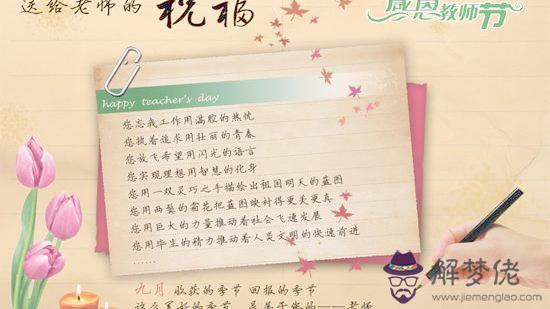 送给老师的 祝福
感恩教师节
happy teacher's day
您忘我工作用满腔的热忱
您执着追求用壮丽的青春
您放飞希望用闪光的语言
您实现理想用智慧的化身
您用一双灵巧之手描绘出祖国明天的蓝图
您用两鬓的霜花把蓝图映衬得更美更真
您用巨大的力量推动着社会飞速发展
您用毕生的精力推动着人类文明的快速前进
......
九月 收获的季节 回报的季节
这么美好的季节 是属于您的——老师
解梦佬
www.jiemenglao.com